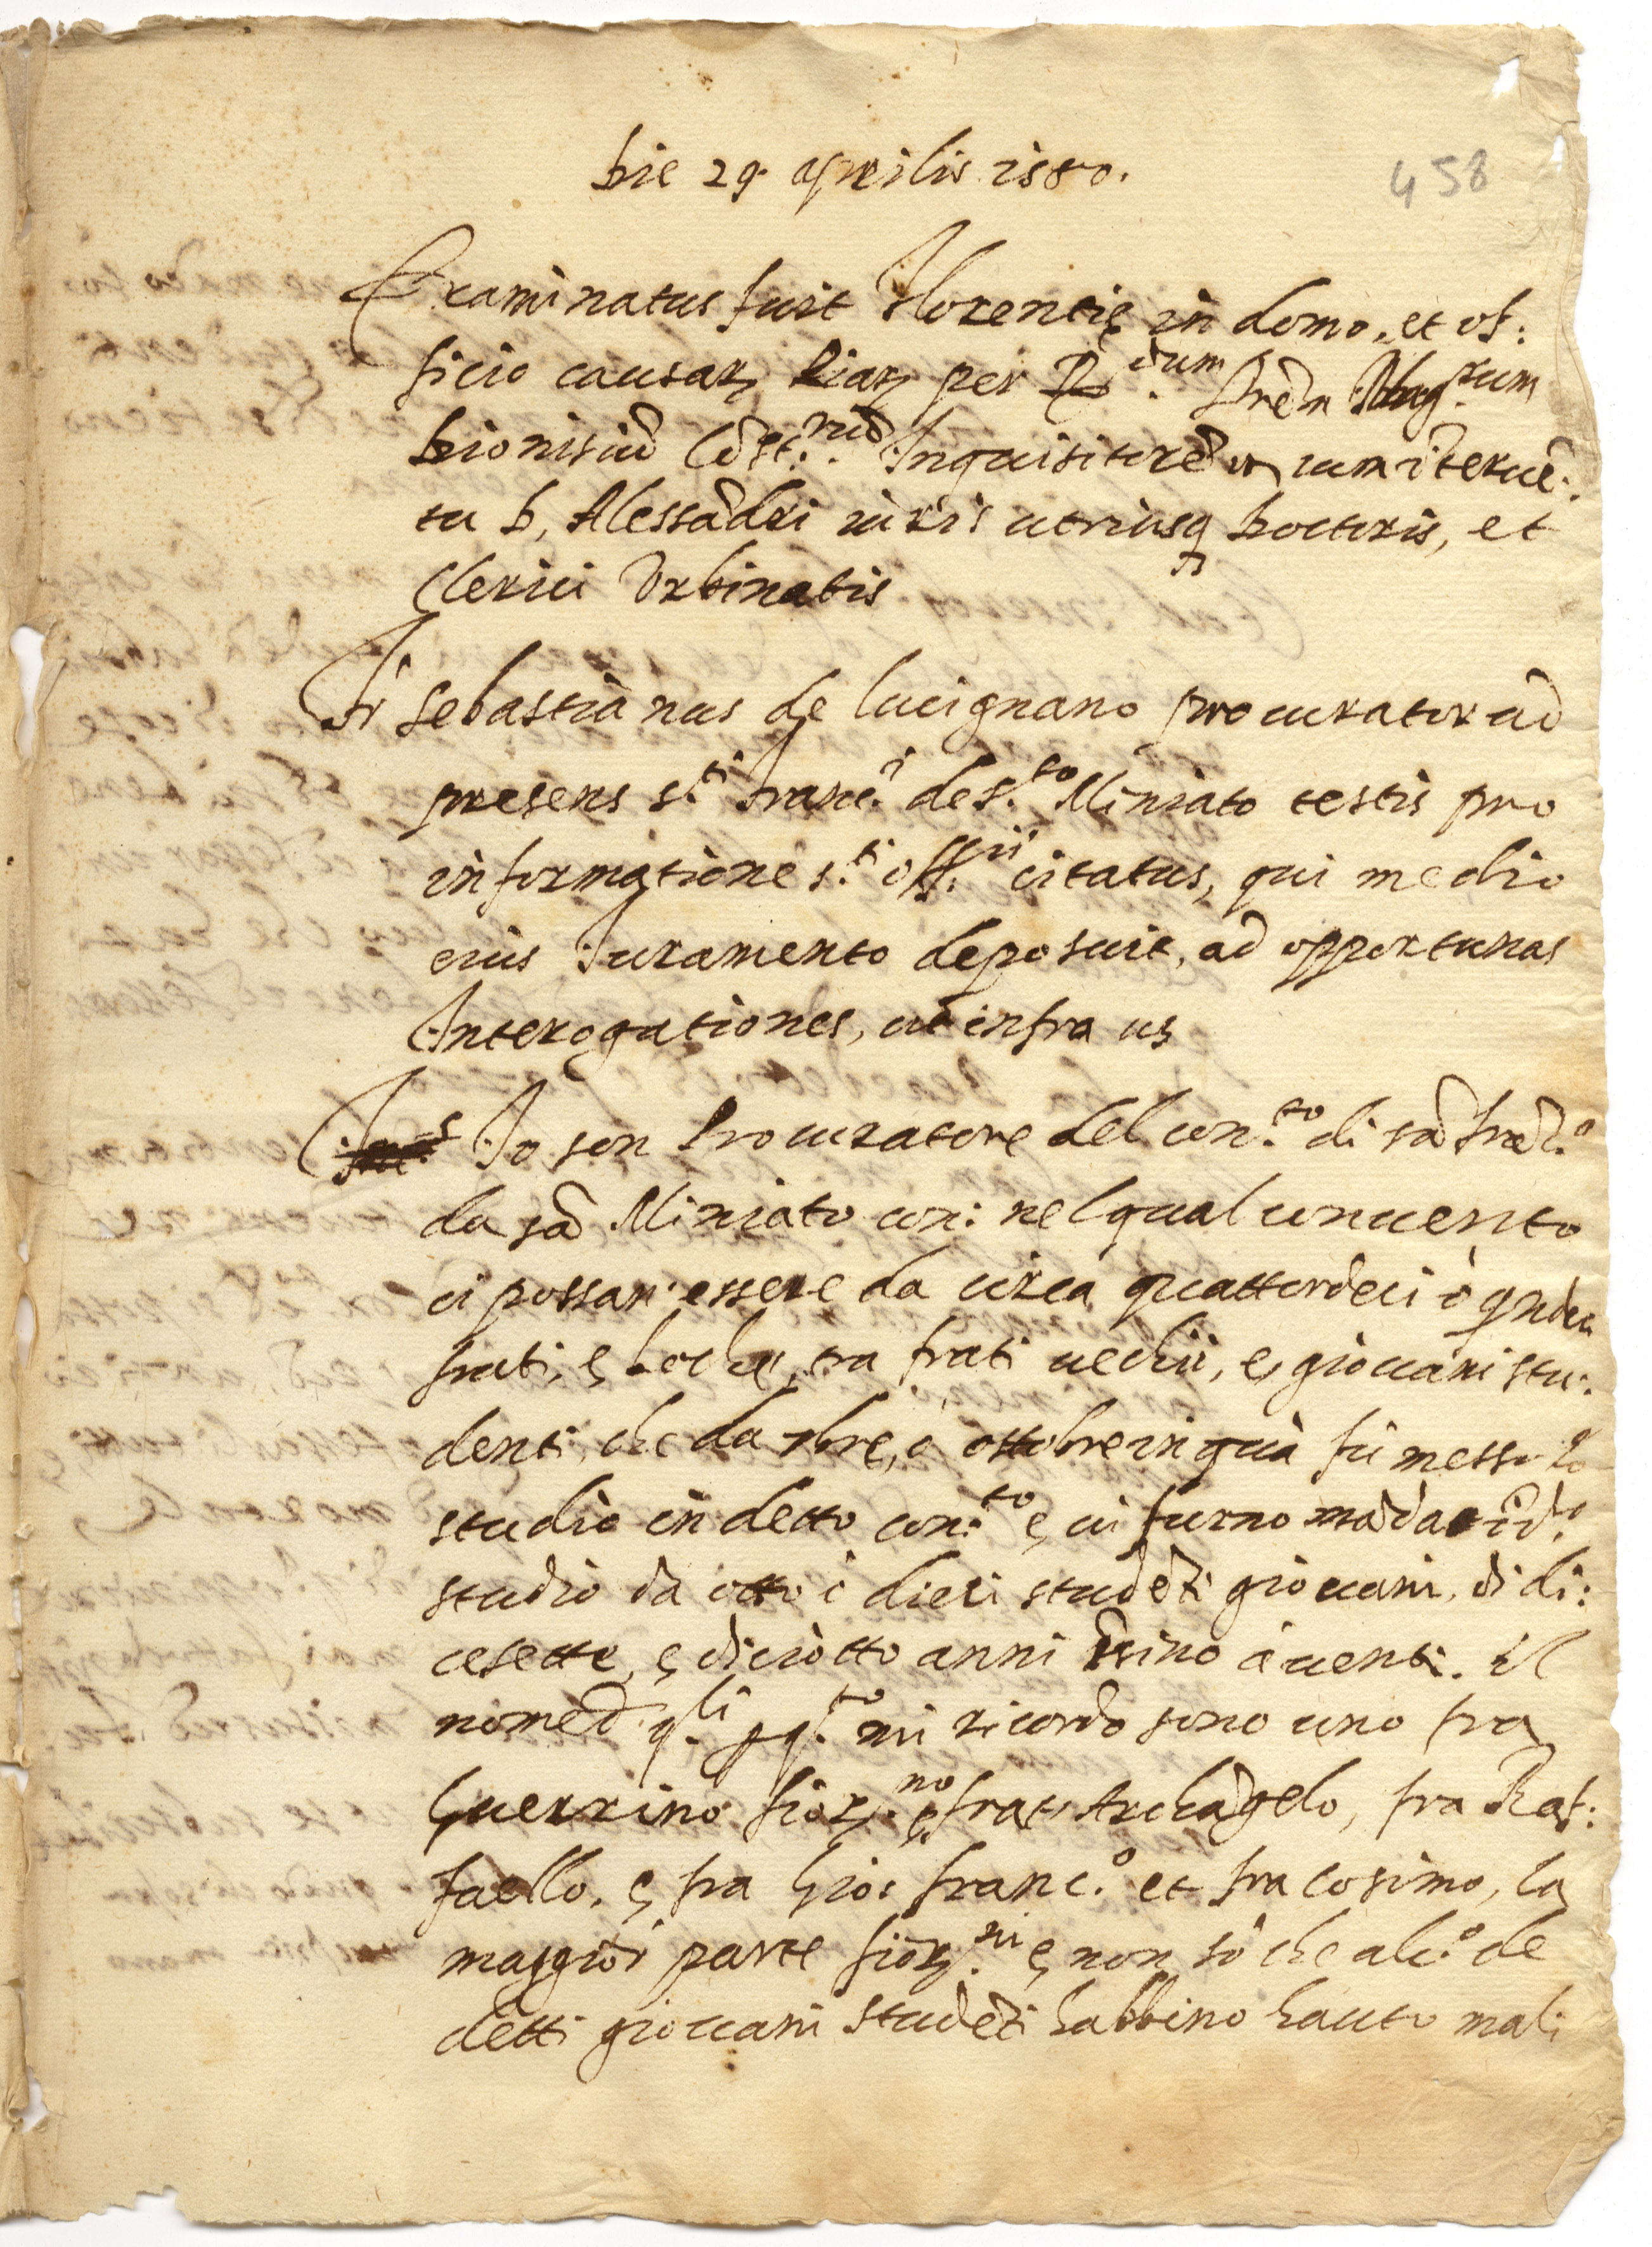 Die 29 aprilis 1580.
458
Examinatus fuit Florentię in domo, et of:
ficio causarꝝ per R.dum frem Mag.rum
Dionisiū Cōst.num Inquisitorē cum īteruē:
tu D. Alessādri iuris utriusq Doctoris, et
Clerici Urbinatis
Fr Sebastianus de lucignano procurator ad
presens s.ti Franc.i de s.to Miniato testis pro
informatione s.ti off.ii citatus, qui medio
eius Juramento deposuit, ad opportunas
Interogationes, ut infra uȝ
Io son Procuratore del con.to di sā Frāc.o
da sā Miniato con: nel qual conuento
ci possan essere da circa quattordeci ò
frati, ę tra frati uechii, e giouani stu:
denti, che da 7bre, ò ottobre in quà fù messo lo
studio in detto con.to ę ui furno mādati ī d.o
studio da otto ò dieci studēti giouani, di di:
cesette, ę diciotto anni sino à uenti. il
nome d q.li p q.to mi ricordo sono uno fra
Guerrino fiorꝝ.no ę frat Archāgelo, fra Raf:
faello, ę fra Gio: franc.o et fra Cosimo, la
maggior parte fiorꝝ.ni ę non sò che alc.o de
detti giouani studēti habbino hauto mali